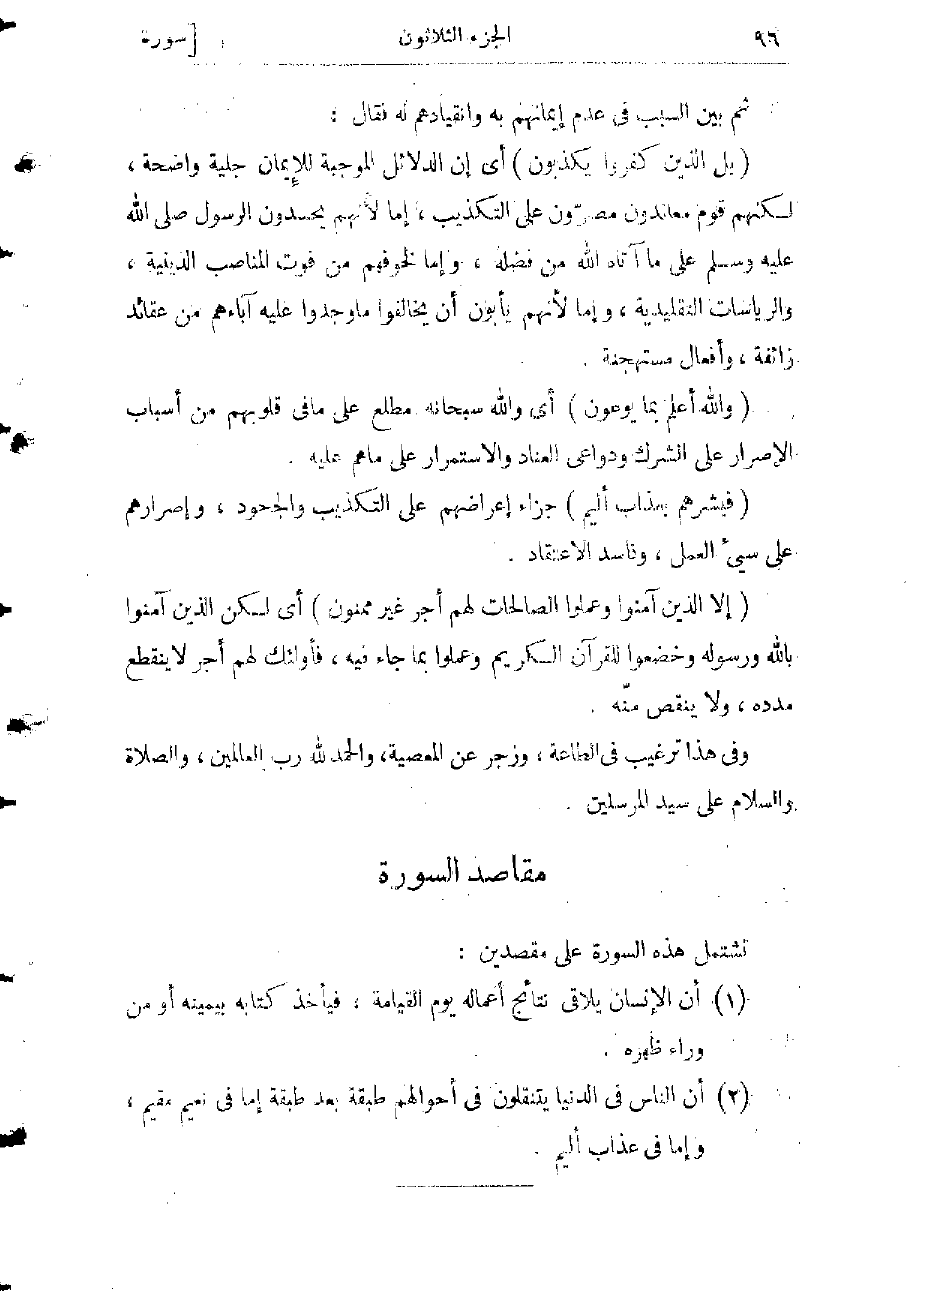 ٩٦ الجزء الثلاثون [سورة
ثم بين السبب فى عدم إيمانهم به وانقيادهم له فقال :
( بل الذين كفروا يكذبون ) أى إن الدلائل الموجبة للإيمان جلية واضحة ،
لكنهم قوم معاندون مصرّون على التكذيب ، إما لأنهم يحسدون الرسول صلى الله
عليه وسلم على ما آتاه الله من فضله ، وإما لخوفهم من فوت المناصب الدينية ،
والرياسات التقليدية ، وإما لأنهم يأبون أن يخالفوا ماوجدوا عليه آباءهم من عقائد
زائفة ، وأفعال مستهجنة .
( والله أعلم بما يوعون ) أى والله سبحانه مطلع على مافى قلوبهم من أسباب
الإصرار على الشرك ودواعى العناد والاستمرار على ماهم عليه .
( فبشرهم بعذاب أليم ) جزاء إعراضهم على التكذيب والجحود ، وإصرارهم
على سيئ العمل ، وفاسد الاعتقاد .
( إلا الذين آمنوا وعملوا الصالحات لهم أجر غير ممنون ) أى لكن الذين آمنوا
بالله ورسوله وخضعوا للقرآن الكريم وعملوا بما جاء فيه ، فأولئك لهم أجر لاينقطع
مدده ، ولا ينقص منّه .
وفى هذا ترغيب فى الطاعة ، وزجر عن المعصية، والحمد لله رب العالمين ، والصلاة
والسلام على سيد المرسلين .
مقاصد السورة
تشتمل هذه السورة على مقصدين :
(١) أن الإنسان يلاقى نتائج أعماله يوم القيامة ، فيأخذ كتابه بيمينه أو من
وراء ظهره .
(٢) أن الناس فى الدنيا يتنقلون فى أحوالهم طبقة بعد طبقة إما فى نعيم مقيم ،
وإما فى عذاب أليم .